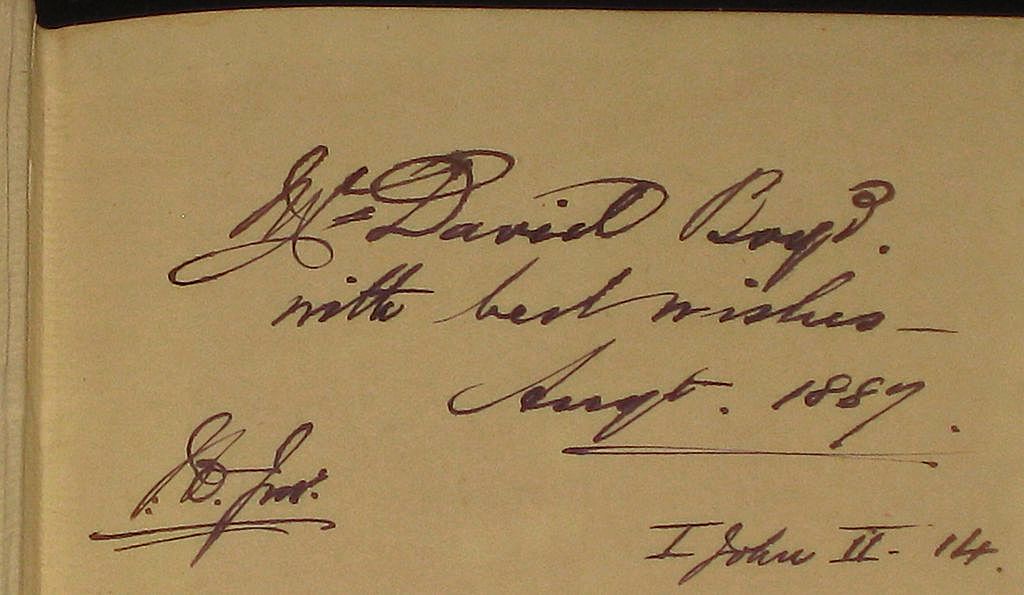 Mr David Boyd.
with best wishes —
Augt. 1887.
I John II - 14.